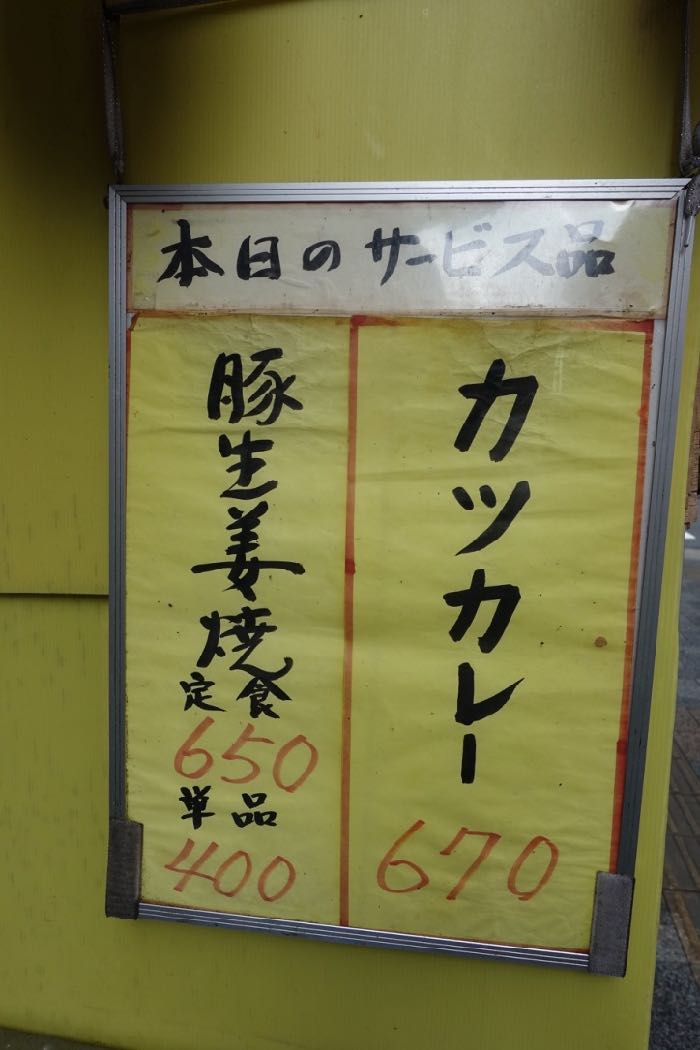 本日のサービス品
カツカレー
670
豚生姜焼
定食
650
単品
400